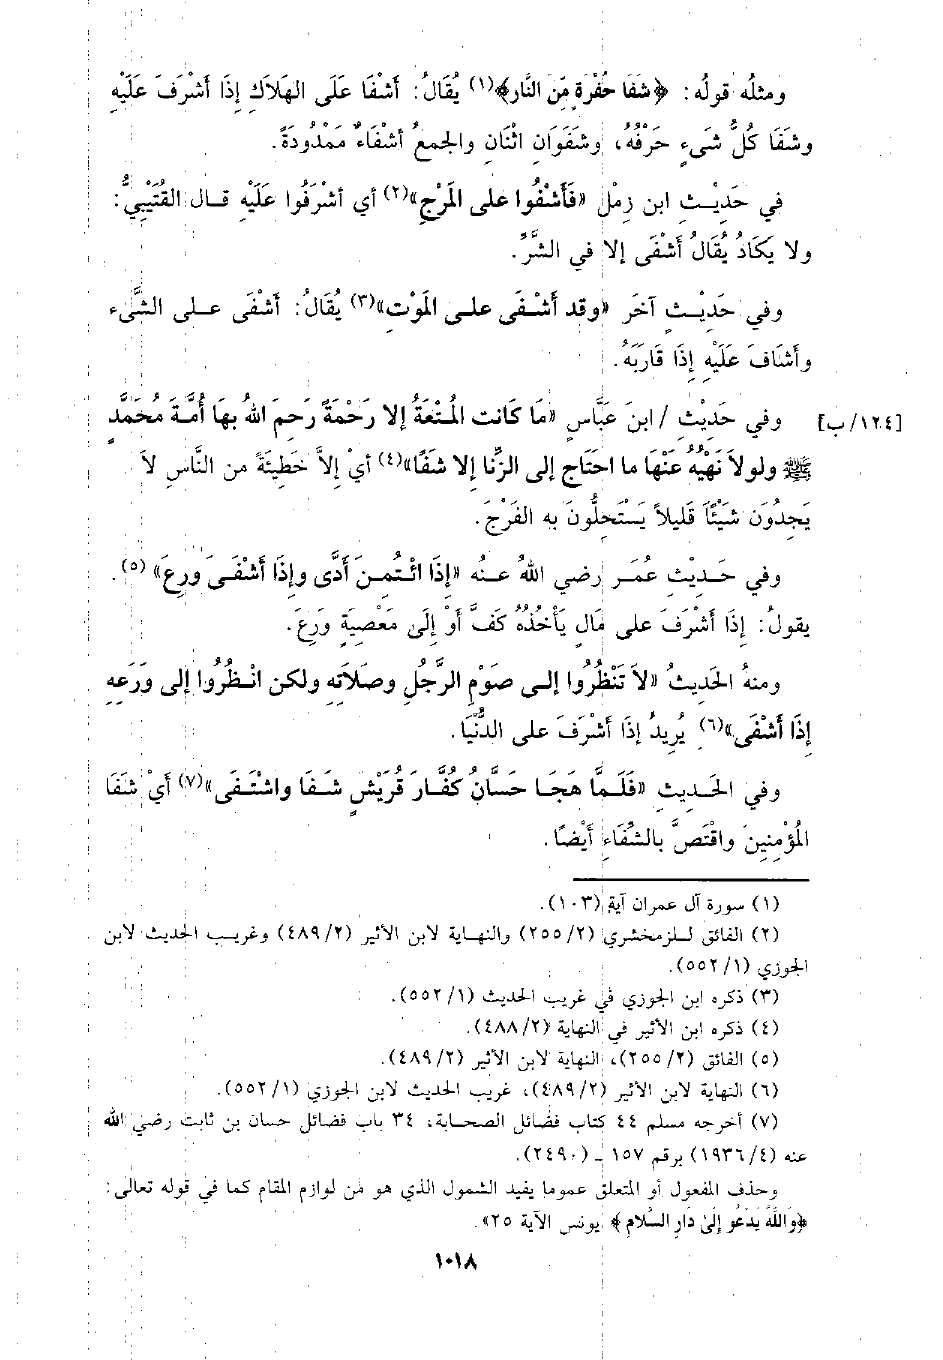 ومثلُه قولُه: ﴿شَفَا حُفْرَةٍ مِّنَ النَّارِ﴾(١) يُقَالُ: أَشْفَا عَلَى الهَلاَكِ إِذَا أَشْرَفَ عَلَيْهِ
وشَفَا كُلُّ شَيءٍ حَرْفُهُ، وشَفَوَانِ اثْنَانِ والجمعُ أشْفَاءٌ مَمْدُودَةً.
في حَدِيْثِ ابن زِمْل «فَأَشْفُوا على المَرْجِ»(٢) أي أشرَفُوا عَلَيْهِ قال القُتَيْبِيُّ:
ولا يَكَادُ يُقَالُ أَشْفَى إلا في الشَّرِّ.
وفي حَدِيْثٍ آخَرَ «وقد أَشْفَى على المَوْتِ»(٣) يُقَالُ: أَشْفَى على الشَّيء
وأَشَافَ عَلَيْهِ إِذَا قَارَبَهُ.
[١٢٤/ب] وفي حَدِيْثِ / ابنَ عَبَّاسٍ «مَا كَانت المُتْعَةُ إلا رَحْمَةً رَحِمَ اللهُ بهَا أُمَّةَ مُحَمَّدٍ
ﷺ ولولاَ نَهْيُهُ عَنْهَا ما احتَاج إلى الزِّنا إلا شَفًا»(٤) أيْ إلاَّ خَطِيْئَةً من النَّاسِ لاَ
يَجِدُوَن شَيْئًا قليلاً يَسْتَحِلُّونَ به الفَرْجَ.
وفي حَدِيْثِ عُمَر رضي اللهُ عنهُ «إِذَا ائْتُمنَ أَدَّى وإِذَا أَشْفَى وَرِعَ» (٥).
يقولُ: إِذَا أَشْرَفَ على مَالٍ يَأْخُذُهُ كَفَّ أوْ إِلَى مَعْصِيَةٍ وَرِعَ.
ومنهُ الحَديثُ «لاَ تَنْظُرُوا إلى صَوْمِ الرَّجُلِ وصَلاَتِه ولكن انْظُرُوا إلى وَرَعِهِ
إِذَا أَشْفَى»(٦) يُرِيدُ إِذَا أَشْرَفَ على الدُّنْيَا.
وفي الحَديثِ «فَلَمَّا هَجَا حَسَّانُ كُفَّارَ قُرَيْشٍ شَفَا واشْتَفَى»(٧) أيْ شَفَا
المُؤْمِنِينَ واقْتَصَّ بالشِّفَاءِ أَيْضًا.
(١) سورة آل عمران آية (١٠٣).
(٢) الفائق للزمخشري (٢/٢٥٥) والنهاية لابن الأثير (٢/٤٨٩) وغريب الحديث لابن
الجوزي (١/٥٥٢).
(٣) ذكره ابن الجوزي في غريب الحديث (١/٥٥٢).
(٤) ذكره ابن الأثير في النهاية (٢/٤٨٨).
(٥) الفائق (٢/٢٥٥)، النهاية لابن الأثير (٢/٤٨٩).
(٦) النهاية لابن الأثير (٢/٤٨٩)، غريب الحديث لابن الجوزي (١/٥٥٢).
(٧) أخرجه مسلم ٤٤ كتاب فضائل الصحابة، ٣٤ باب فضائل حسان بن ثابت رضي الله
عنه (٤/١٩٣٦) برقم ١٥٧ ـ (٢٤٩٠).
وحذف المفعول أو المتعلق عموما يفيد الشمول الذي هو من لوازم المقام كما في قوله تعالى:
﴿وَاللَّهُ يَدْعُو إِلَىٰ دَارِ السَّلَامِ﴾ يونس الآية ٢٥».
١٠١٨